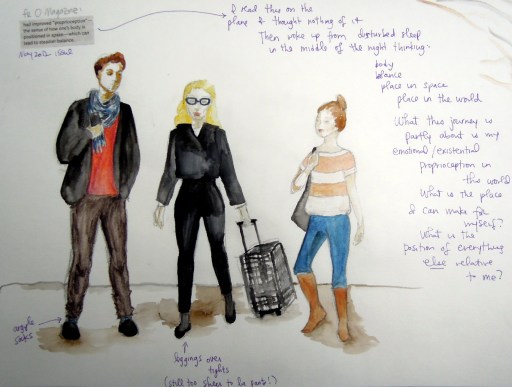 Fr O Magazine:
had improved "proprioception"—
the sense of how one's body is
positioned in space—which can
lead to steadier balance.
May 2012 issue
I read this on the
plane & thought nothing of it
Then woke up from disturbed sleep
in the middle of the night thinking:
body
balance
place in space
place in the world
What this journey is
partly about is my
emotional/existential
proprioception in
this world
What is the place
I can make for
myself?
What is the
position of everything
else relative
to me?
argyle
socks
leggings over
tights
(still too sheer to be pants!)